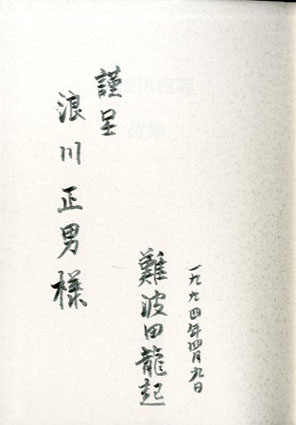 一九九四年四月九日
難波田龍起
謹呈
浪川正男様